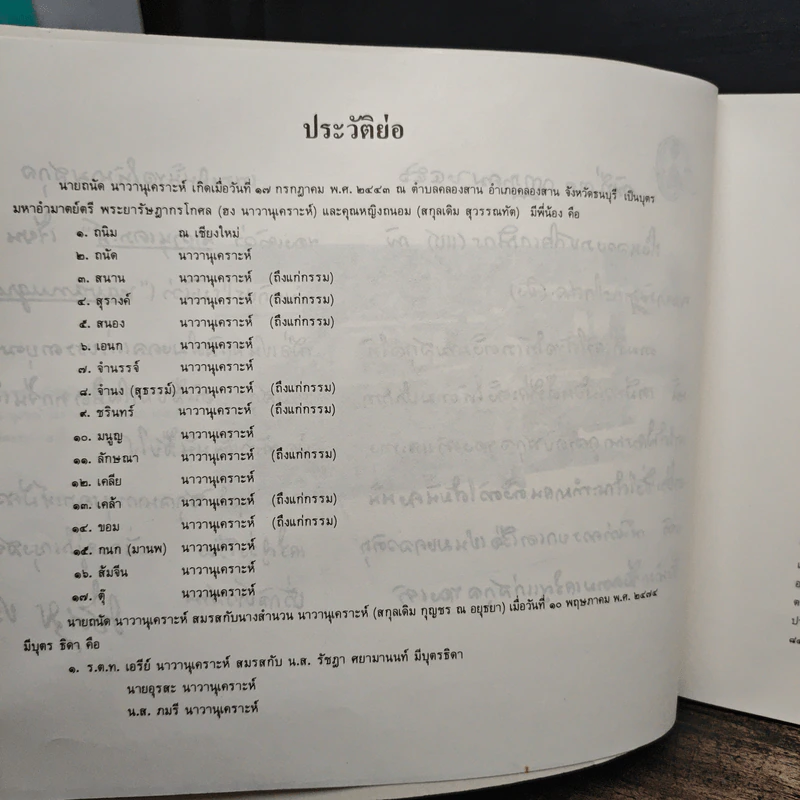 ประวัติย่อ
นายถนัด นาวานุเคราะห์ เกิดเมื่อวันที่ ๑๗ กรกฎาคม พ.ศ. ๒๔๔๓ ณ ตำบลคลองสาน อำเภอคลองสาน จังหวัดธนบุรี เป็นบุตร
มหาอำมาตย์ตรี พระยาราษฎากรโกศล (ฮง นาวานุเคราะห์) และคุณหญิงถนอม (สกุลเดิม สุวรรณทัต) มีพี่น้อง คือ
๑. ถนิม ณ เชียงใหม่
๒. ถนัด นาวานุเคราะห์
๓. สนาน นาวานุเคราะห์ (ถึงแก่กรรม)
๔. สุรางค์ นาวานุเคราะห์ (ถึงแก่กรรม)
๕. สนอง นาวานุเคราะห์ (ถึงแก่กรรม)
๖. เอนก นาวานุเคราะห์
๗. จำนรรจ์ นาวานุเคราะห์
๘. จำนง (สุธรรม์) นาวานุเคราะห์ (ถึงแก่กรรม)
๙. ชรินทร์ นาวานุเคราะห์ (ถึงแก่กรรม)
๑๐. มนูญ นาวานุเคราะห์
๑๑. ลักษณา นาวานุเคราะห์ (ถึงแก่กรรม)
๑๒. เคลีย นาวานุเคราะห์
๑๓. เคล้า นาวานุเคราะห์ (ถึงแก่กรรม)
๑๔. ขอม นาวานุเคราะห์ (ถึงแก่กรรม)
๑๕. กนก (มานพ) นาวานุเคราะห์
๑๖. ส้มจีน นาวานุเคราะห์
๑๗. ตุ๊ นาวานุเคราะห์
นายถนัด นาวานุเคราะห์ สมรสกับนางสำนวน นาวานุเคราะห์ (สกุลเดิม กุญชร ณ อยุธยา) เมื่อวันที่ ๑๐ พฤษภาคม พ.ศ. ๒๔๗๔
มีบุตร ธิดา คือ
๑. ร.ต.ท. เอรีย์ นาวานุเคราะห์ สมรสกับ น.ส. รัชฎา ศยามานนท์ มีบุตรธิดา
นายอุรสะ นาวานุเคราะห์
น.ส. ภมรี นาวานุเคราะห์